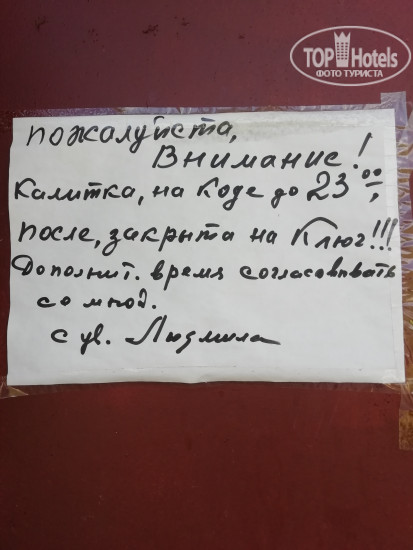 TOP Hotels
ФОТО ТУРИСТА
пожалуйста,
Внимание!
Калитка, на коде до 23 00,
после, закрыта на Ключ!!!
Дополнит. время согласовывать
со мной.
с ув. Людмила